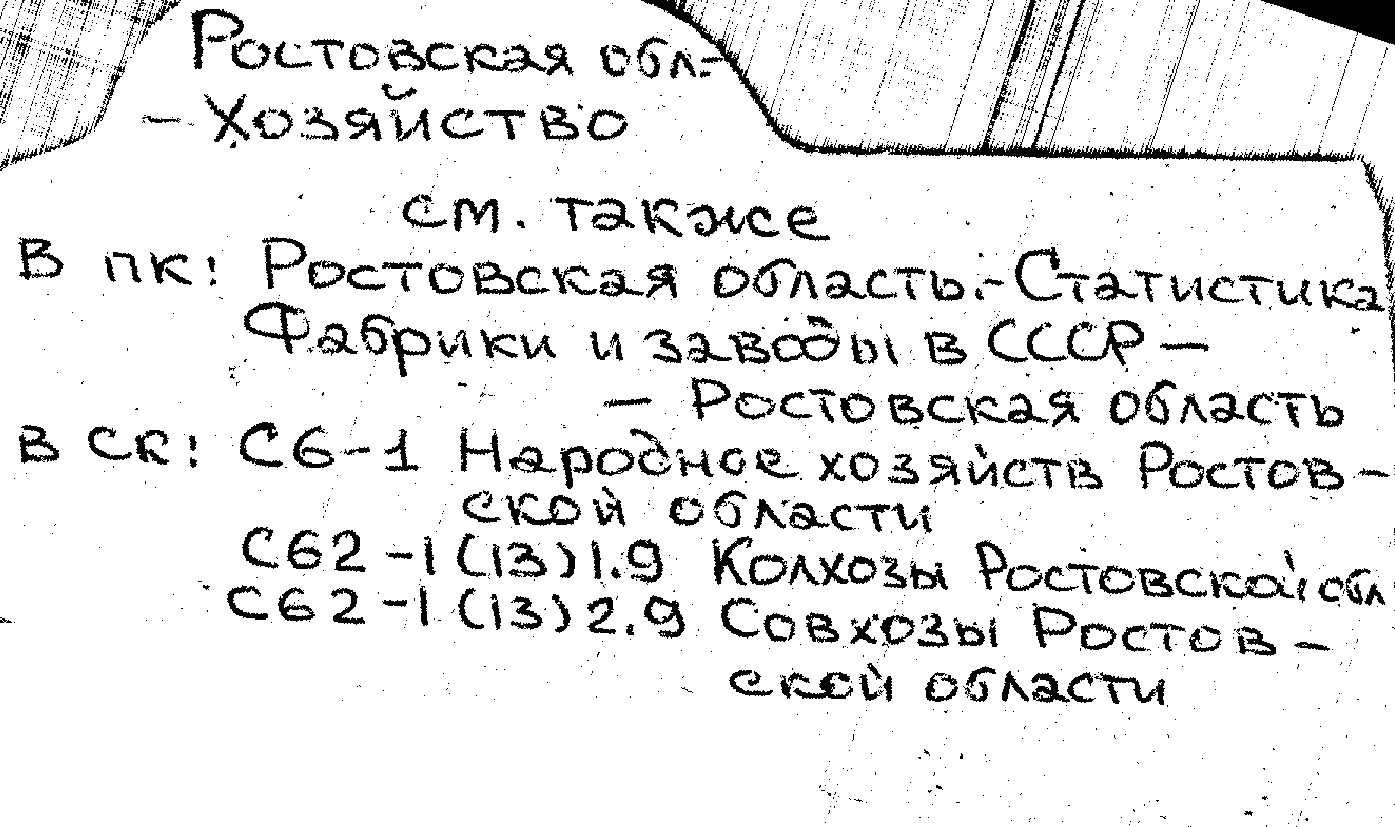 Ростовская обл.-
- Хозяйство
см. также
В ПК: Ростовская область.-Статистика
Фабрики и заводы в СССР —
— Ростовская область
В СК: С6-1 Народное хозяйств Ростов-
ской области
С62-1(13)1.9 Колхозы Ростовской обл
С62-1(13)2.9 Совхозы Ростов-
ской области